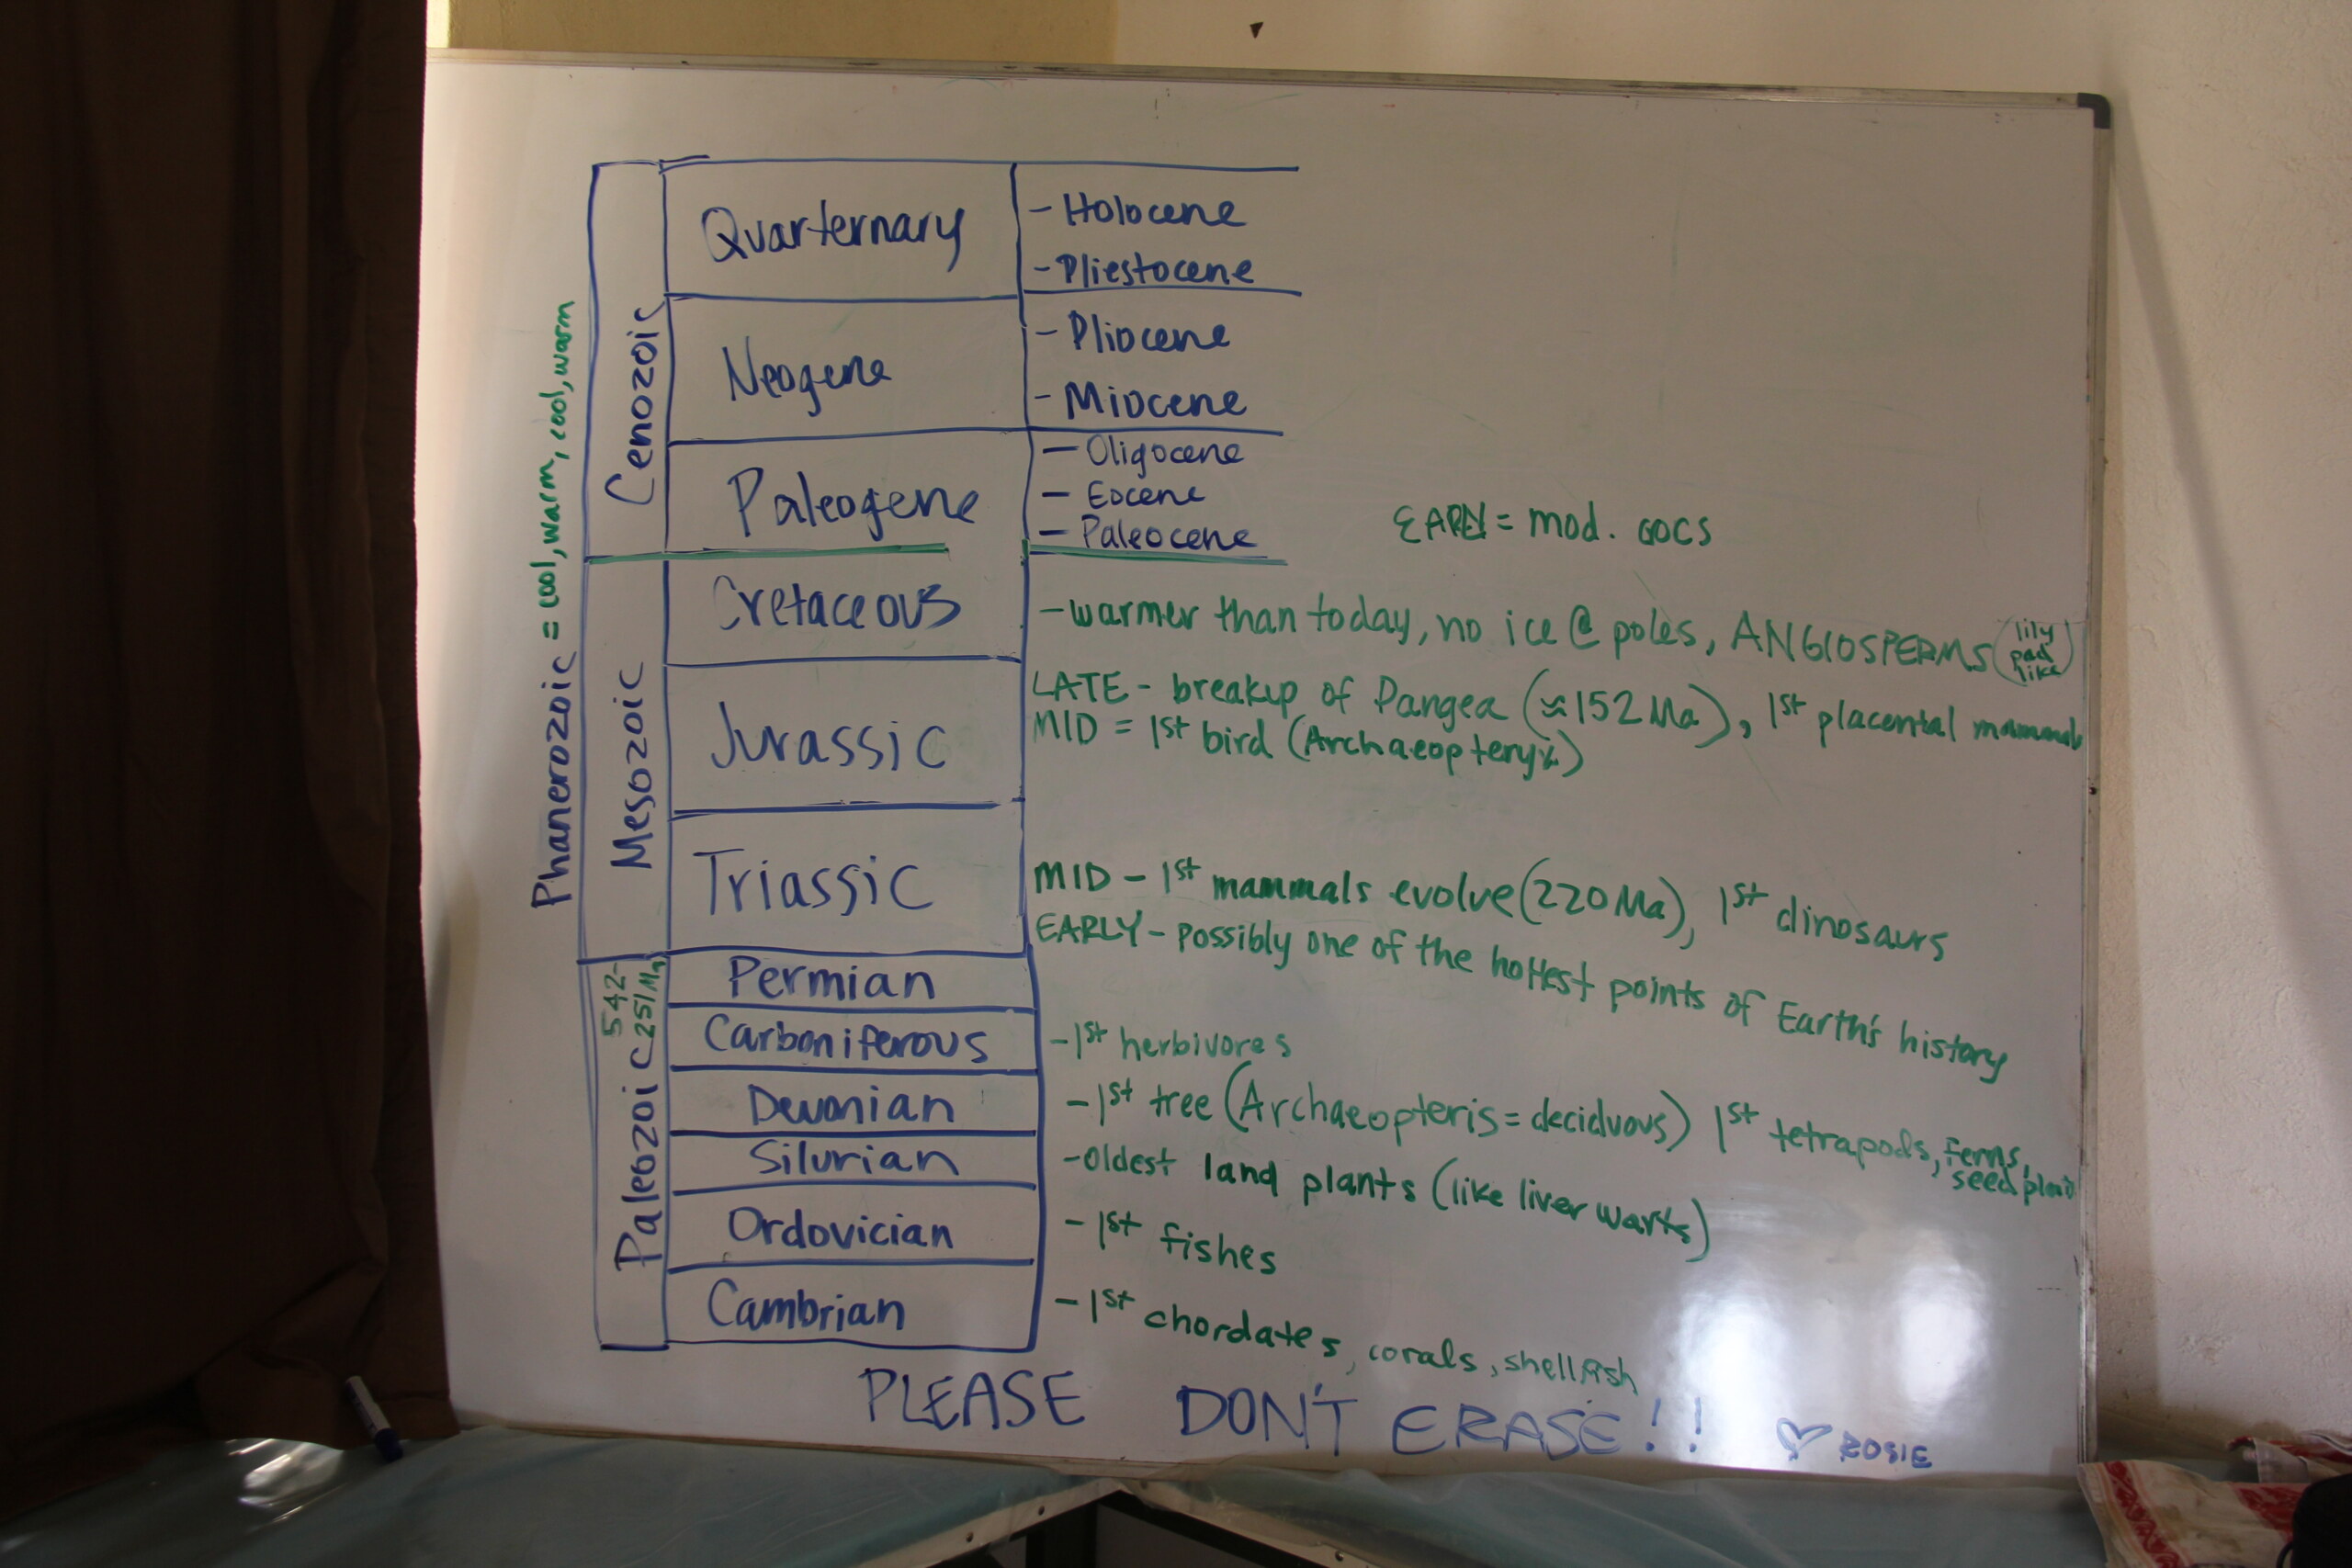 Phanerozoic = cool, warm, cool, warm
Cenozoic
Quarternary
- Holocene
- Pliestocene
Neogene
- Pliocene
- Miocene
Paleogene
- Oligocene
- Eocene
- Paleocene
= mod. GOCS
Mesozoic
Cretaceous
- warmer than today, no ice @ poles, ANGIOSPERMS (lily pad like)
Jurassic
LATE - breakup of Pangea (≈152 Ma), 1st placental mammals
MID = 1st bird (Archaeopteryx)
Triassic
MID - 1st mammals evolve (220 Ma), 1st dinosaurs
EARLY - possibly one of the hottest points of Earth's history
Paleozoic 542-251 Ma
Permian
Carboniferous
- 1st herbivores
Devonian
- 1st tree (Archaeopteris = deciduous) 1st tetrapods, ferns, seed
Silurian
- oldest land plants (like liver warts)
Ordovician
- 1st fishes
Cambrian
- 1st chordates, corals, shellfish
PLEASE DON'T ERASE!!
♡ ROSIE